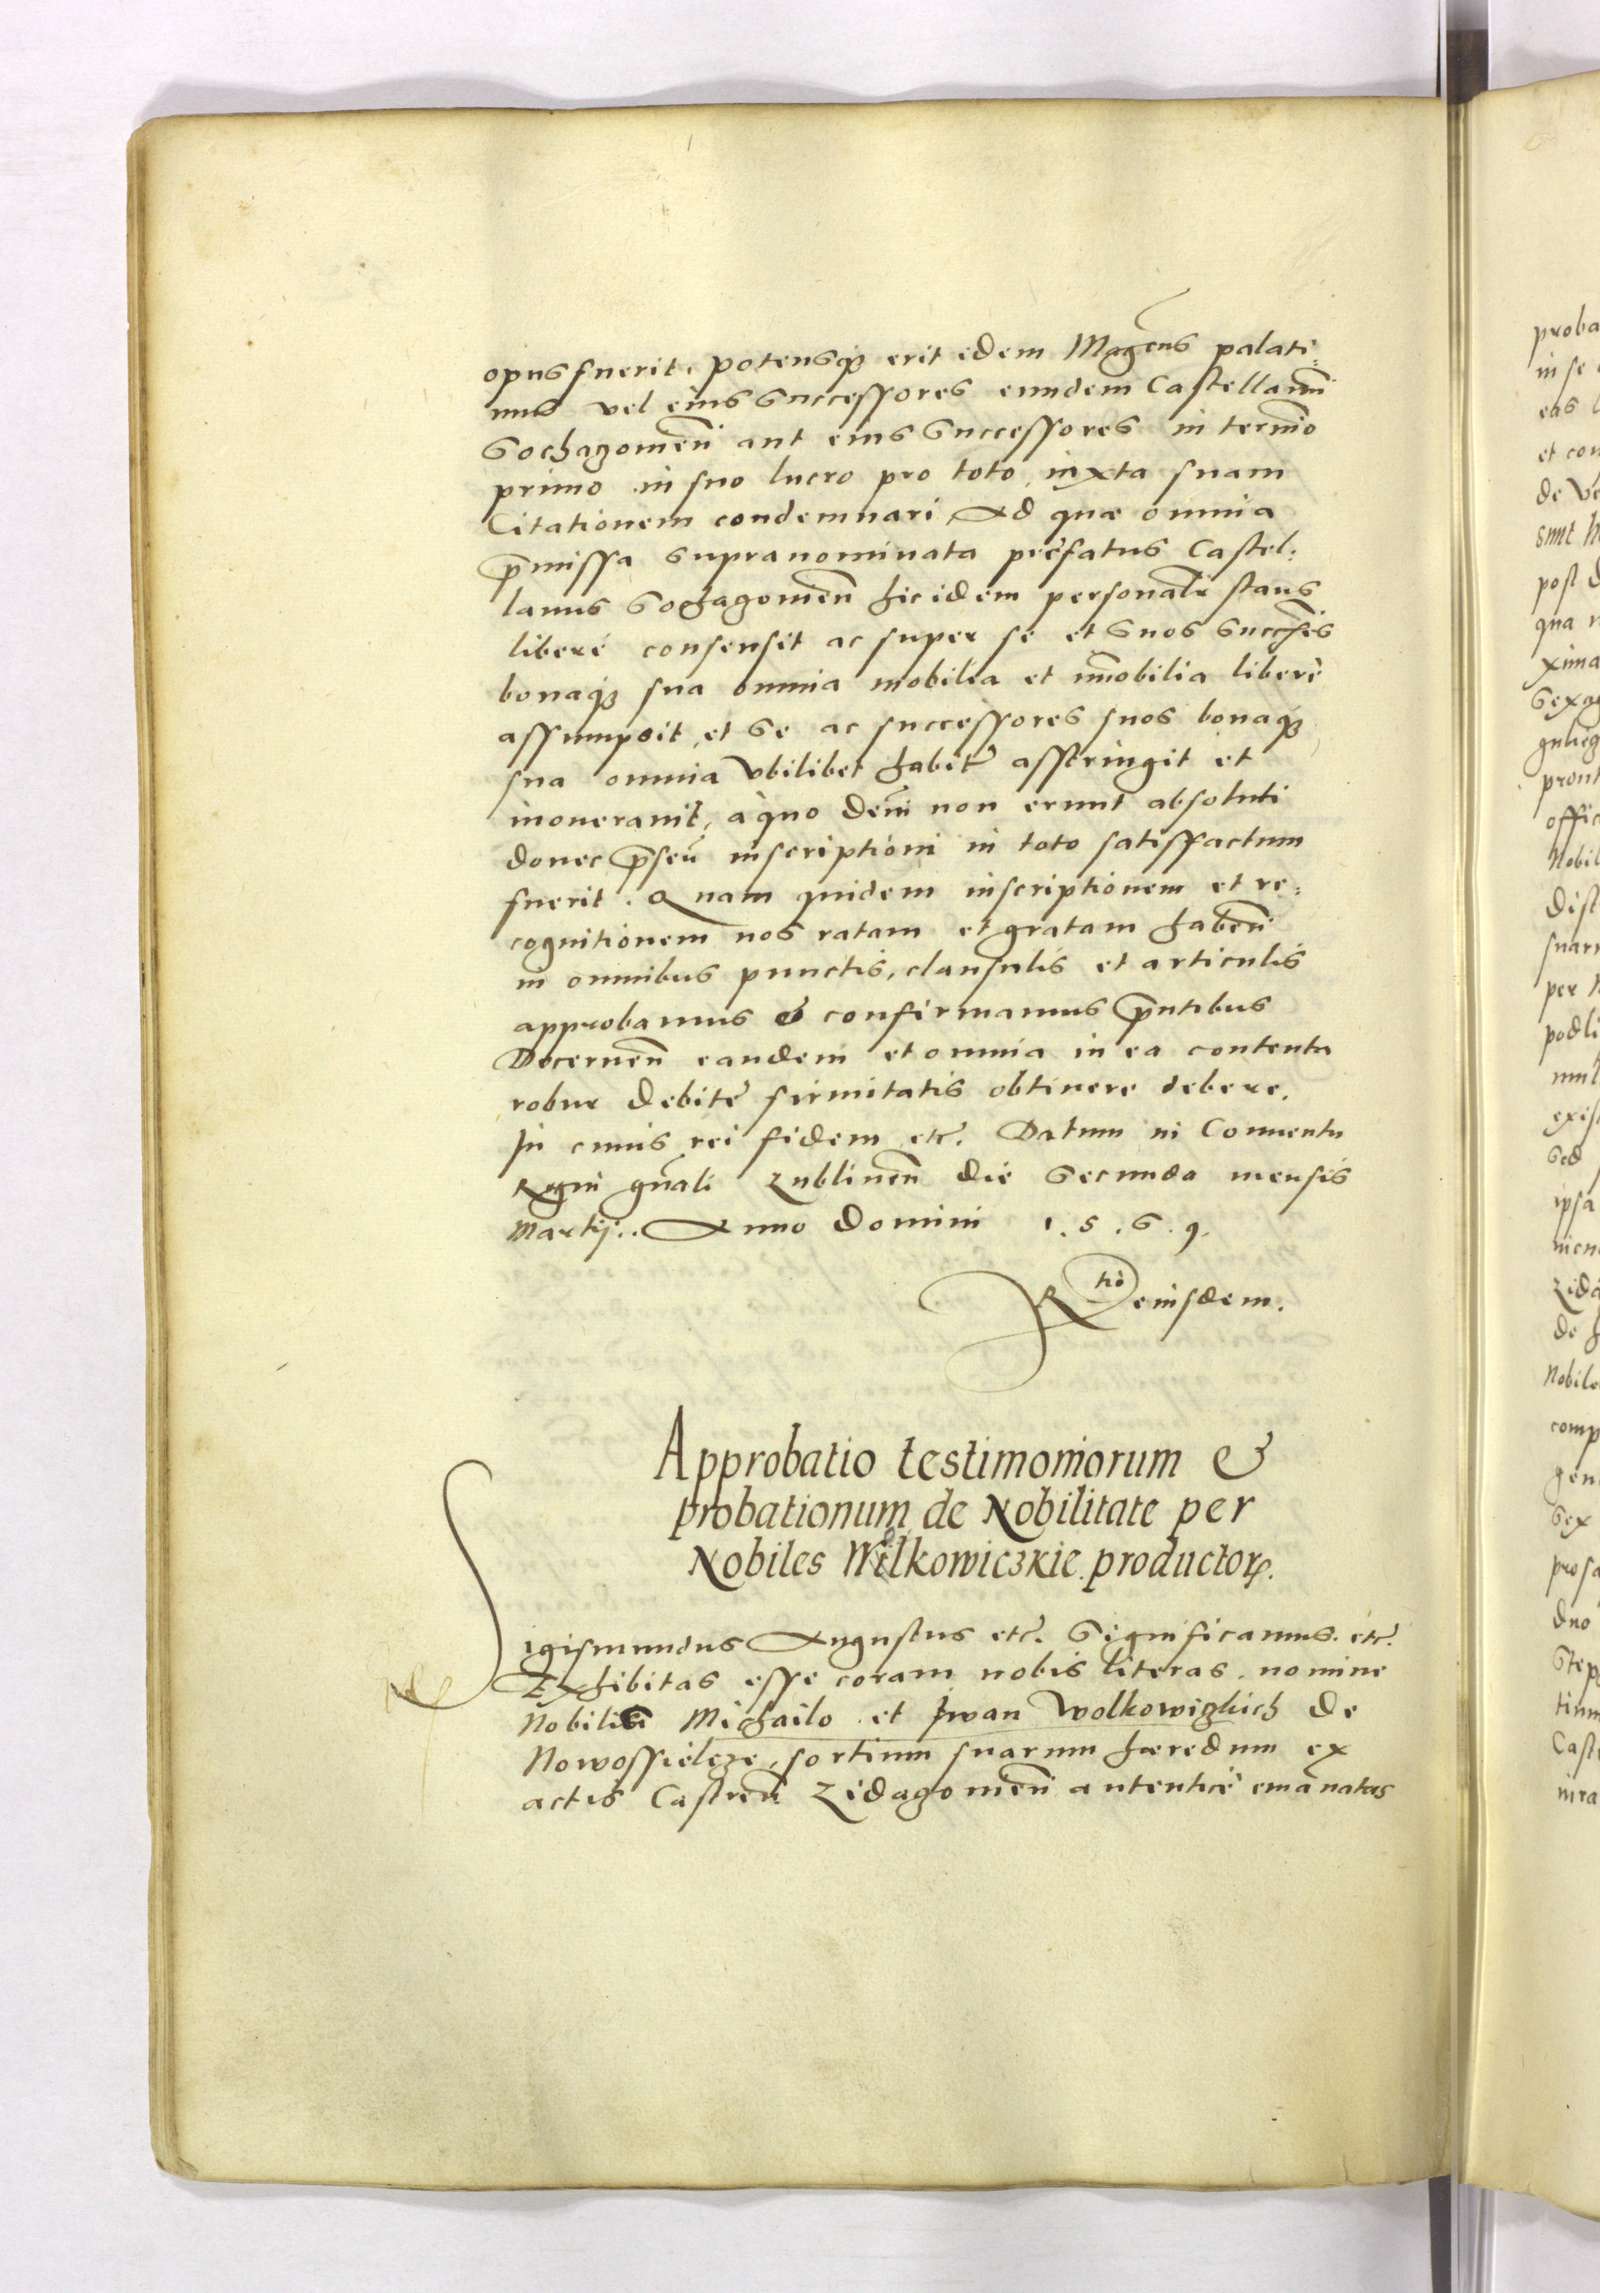 opus fuerit, potensq3 erit idem Mag̃cus palati:
nus vel eius Successores eundem Castellanũ
Sochagouieñ aut eius Successores in termĩo
primo in suo lucro pro toto, iuxta suam
Citationem condemnari, Ad quæ omnia
p̃missa supranominata præfatus Castel:
lanus Sochagouieñ hic idem personalr̃ stans
liberè consensit ac super se et suos Success̃es
bonaq3 sua omnia mobilia et im̃obilia liberè
assumpsit, et se ac successores suos bonaq3
sua omnia vbilibet habitã asstringit et
inonerauit, à quo dem̃ non erunt absoluti
donec p̃señ inscriptioni in toto satisfactum
fuerit. Quam quidem inscriptionem et re:
cognitionem nos ratam et gratam habeñ
in omnibus punctis, clausulis et articulis
approbamus & confirmamus p̃ntibus
Decerneñ eandem et omnia in ea contenta
robur debitę firmitatis obtinere debere.
In cuius rei fidem etc̃. Datum in Conuentu
Regni gñali Lublineñ die Secunda mensis
Martij.. Anno Domini 1.5.6.9.
Rtio eiusdem.
Approbatio testimoniorum &
probationum de Nobilitate per
Nobiles Wolkowiczkie productorꝝ.
Sigismundus Augustus etc̃. Significamus. etc̃.
Exhibitas esse coram nobis literas. nomine
Nobiliũ Michailo et Jwan Wolkowiczkich de
Nowossielcze, sortium suarum hæredum ex
actis Castreñ Zidagouieñ autenticè emanatas
proba
in se
eas
et con
de ve
sunt
post
qua
xima
sexag
pront
offic
Nobil
dist
suar
per
podli
mul
exis
sed
ipsa
de
Nobile
comp
gen
sex
duo
Step
tium
Cast